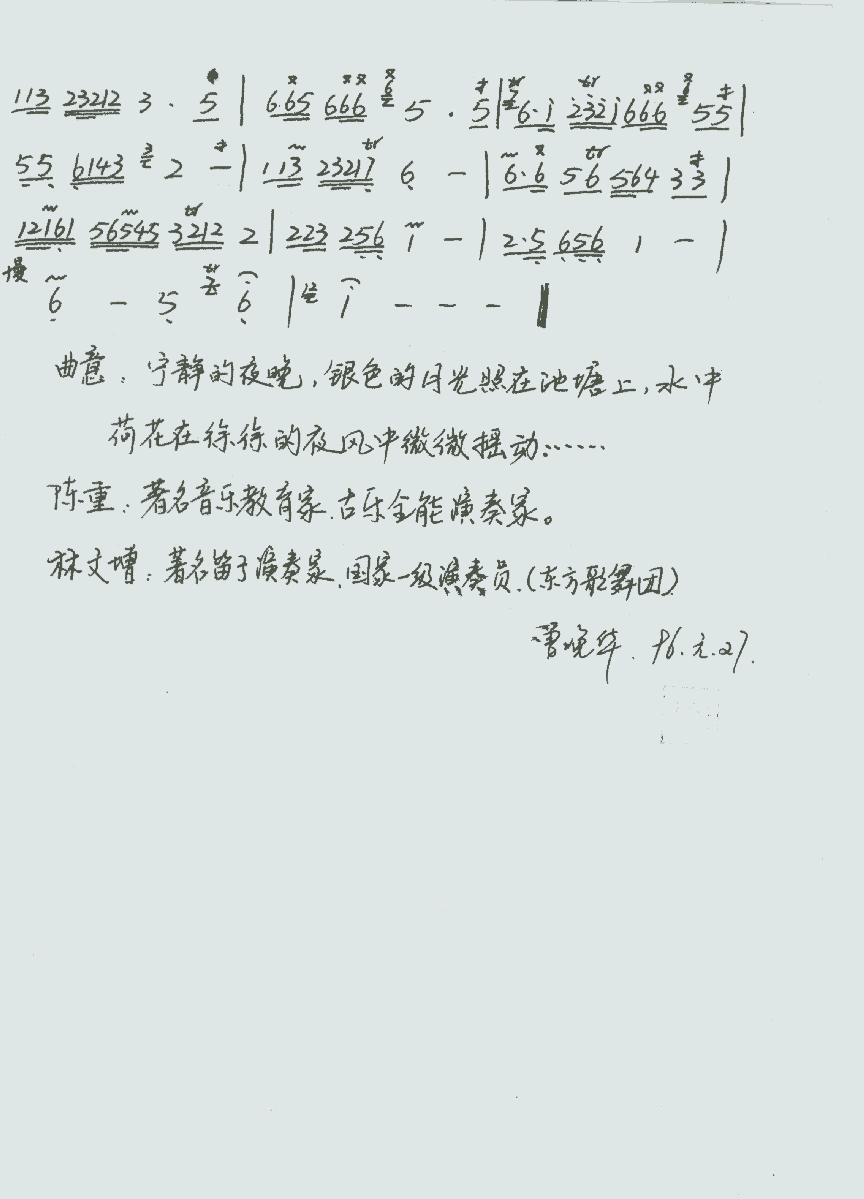 113 23212 3 · 5 | 6·65 666 5 · 5 | 6·i 232i 666 55 |
55 6143 2 - | 113 23217 6 - | 6·6 56 564 33 |
12161 56545 3212 2 | 223 256 i - | 2·5 656 1 - |
慢 6 - 5 6 | i - - - ‖
曲意：宁静的夜晚，银色的月光照在池塘上，水中
荷花在徐徐的夜风中微微摇动……
陈重：著名音乐教育家、古乐全能演奏家。
林文增：著名笛子演奏家、国家一级演奏员.（东方歌舞团）
曾晚华. 96.元.27.